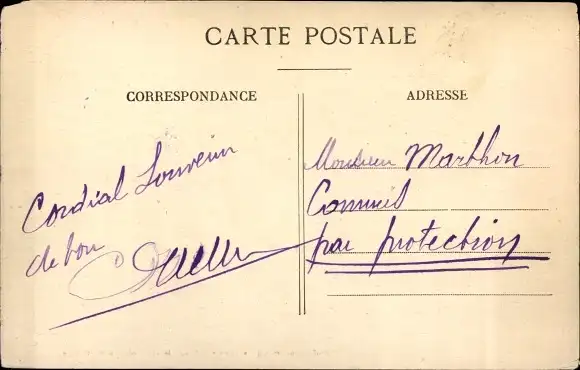 CARTE POSTALE
CORRESPONDANCE
ADRESSE
Cordial Souvenir
de bon
Monsieur Marthon
Commis
par protection